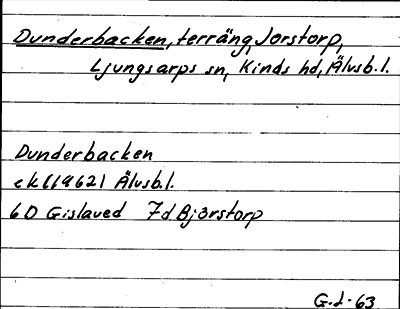 Dunderbacken, terräng, Jorstorp,
Ljungsarps sn, Kinds hd, Älvsb.l.
Dunderbacken
ek (1962) Älvsb.l.
6D Gislaved 7d Bjórstorp
G.d. 63